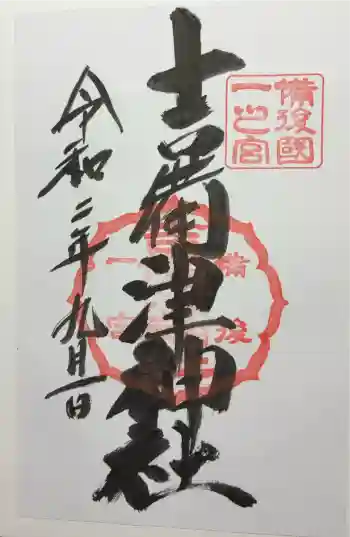 備後國
一之宮
吉備津神社
令和二年九月一日
備後
一宮